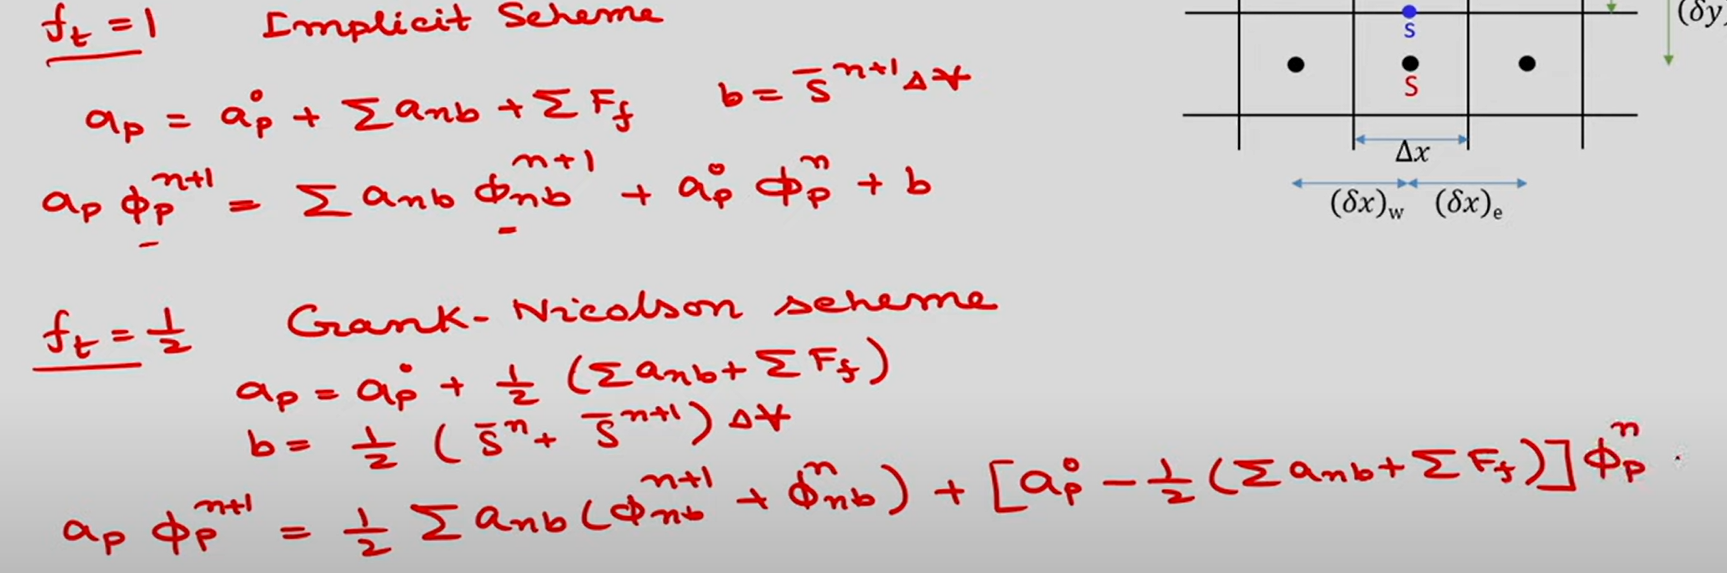 f_t = 1 Implicit Scheme
a_p = a_p^0 + Σ a_nb + Σ F_f b = S̄^{n+1} Δ∀
a_p ϕ_p^{n+1} = Σ a_nb ϕ_nb^{n+1} + a_p^0 ϕ_p^n + b
f_t = 1/2 Crank-Nicolson scheme
a_p = a_p^0 + 1/2 (Σ a_nb + Σ F_f)
b = 1/2 (S̄^n + S̄^{n+1}) Δ∀
a_p ϕ_p^{n+1} = 1/2 Σ a_nb (ϕ_nb^{n+1} + ϕ_nb^n) + [a_p^0 - 1/2 (Σ a_nb + Σ F_f)] ϕ_p^n
(δy)
s
S
Δx
(δx)_w (δx)_e